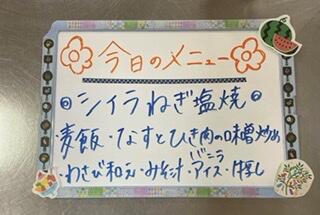 今日のメニュー
◎シイラねぎ塩焼◎
麦飯・なすとひき肉の味噌炒め
・わさび和え・みそ汁・バニラアイス・牛乳